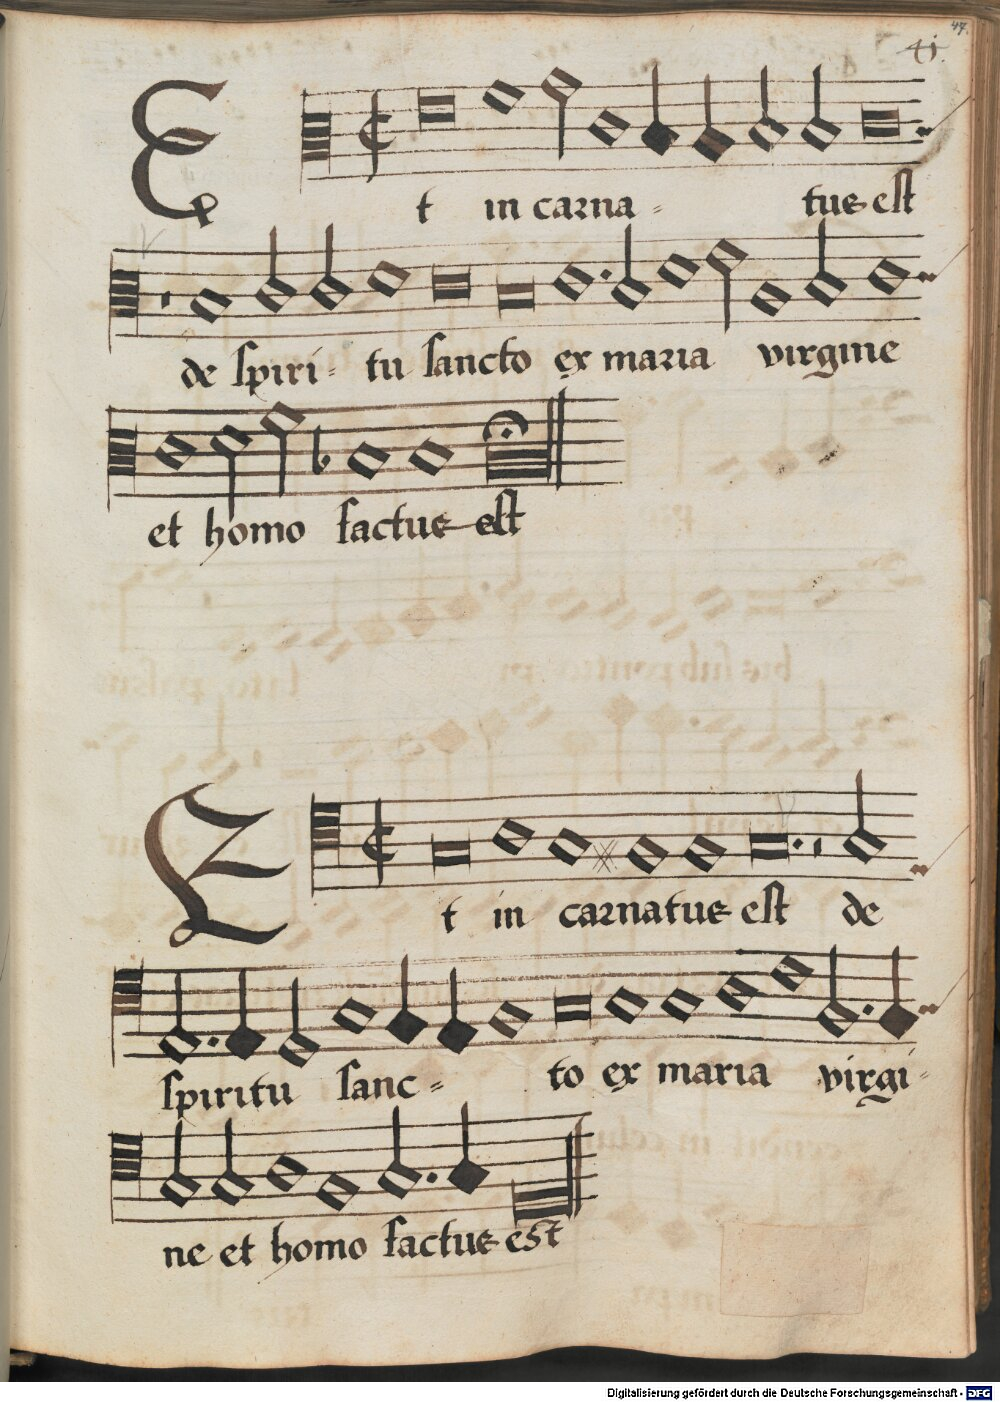 47.
Et in carna- tus est
de spiri- tu sancto ex maria virgine
et homo factus est
Et in carnatus est de
spiritu sanc- to ex maria virgi-
ne et homo factus est
Digitalisierung gefördert durch die Deutsche Forschungsgemeinschaft - DFG